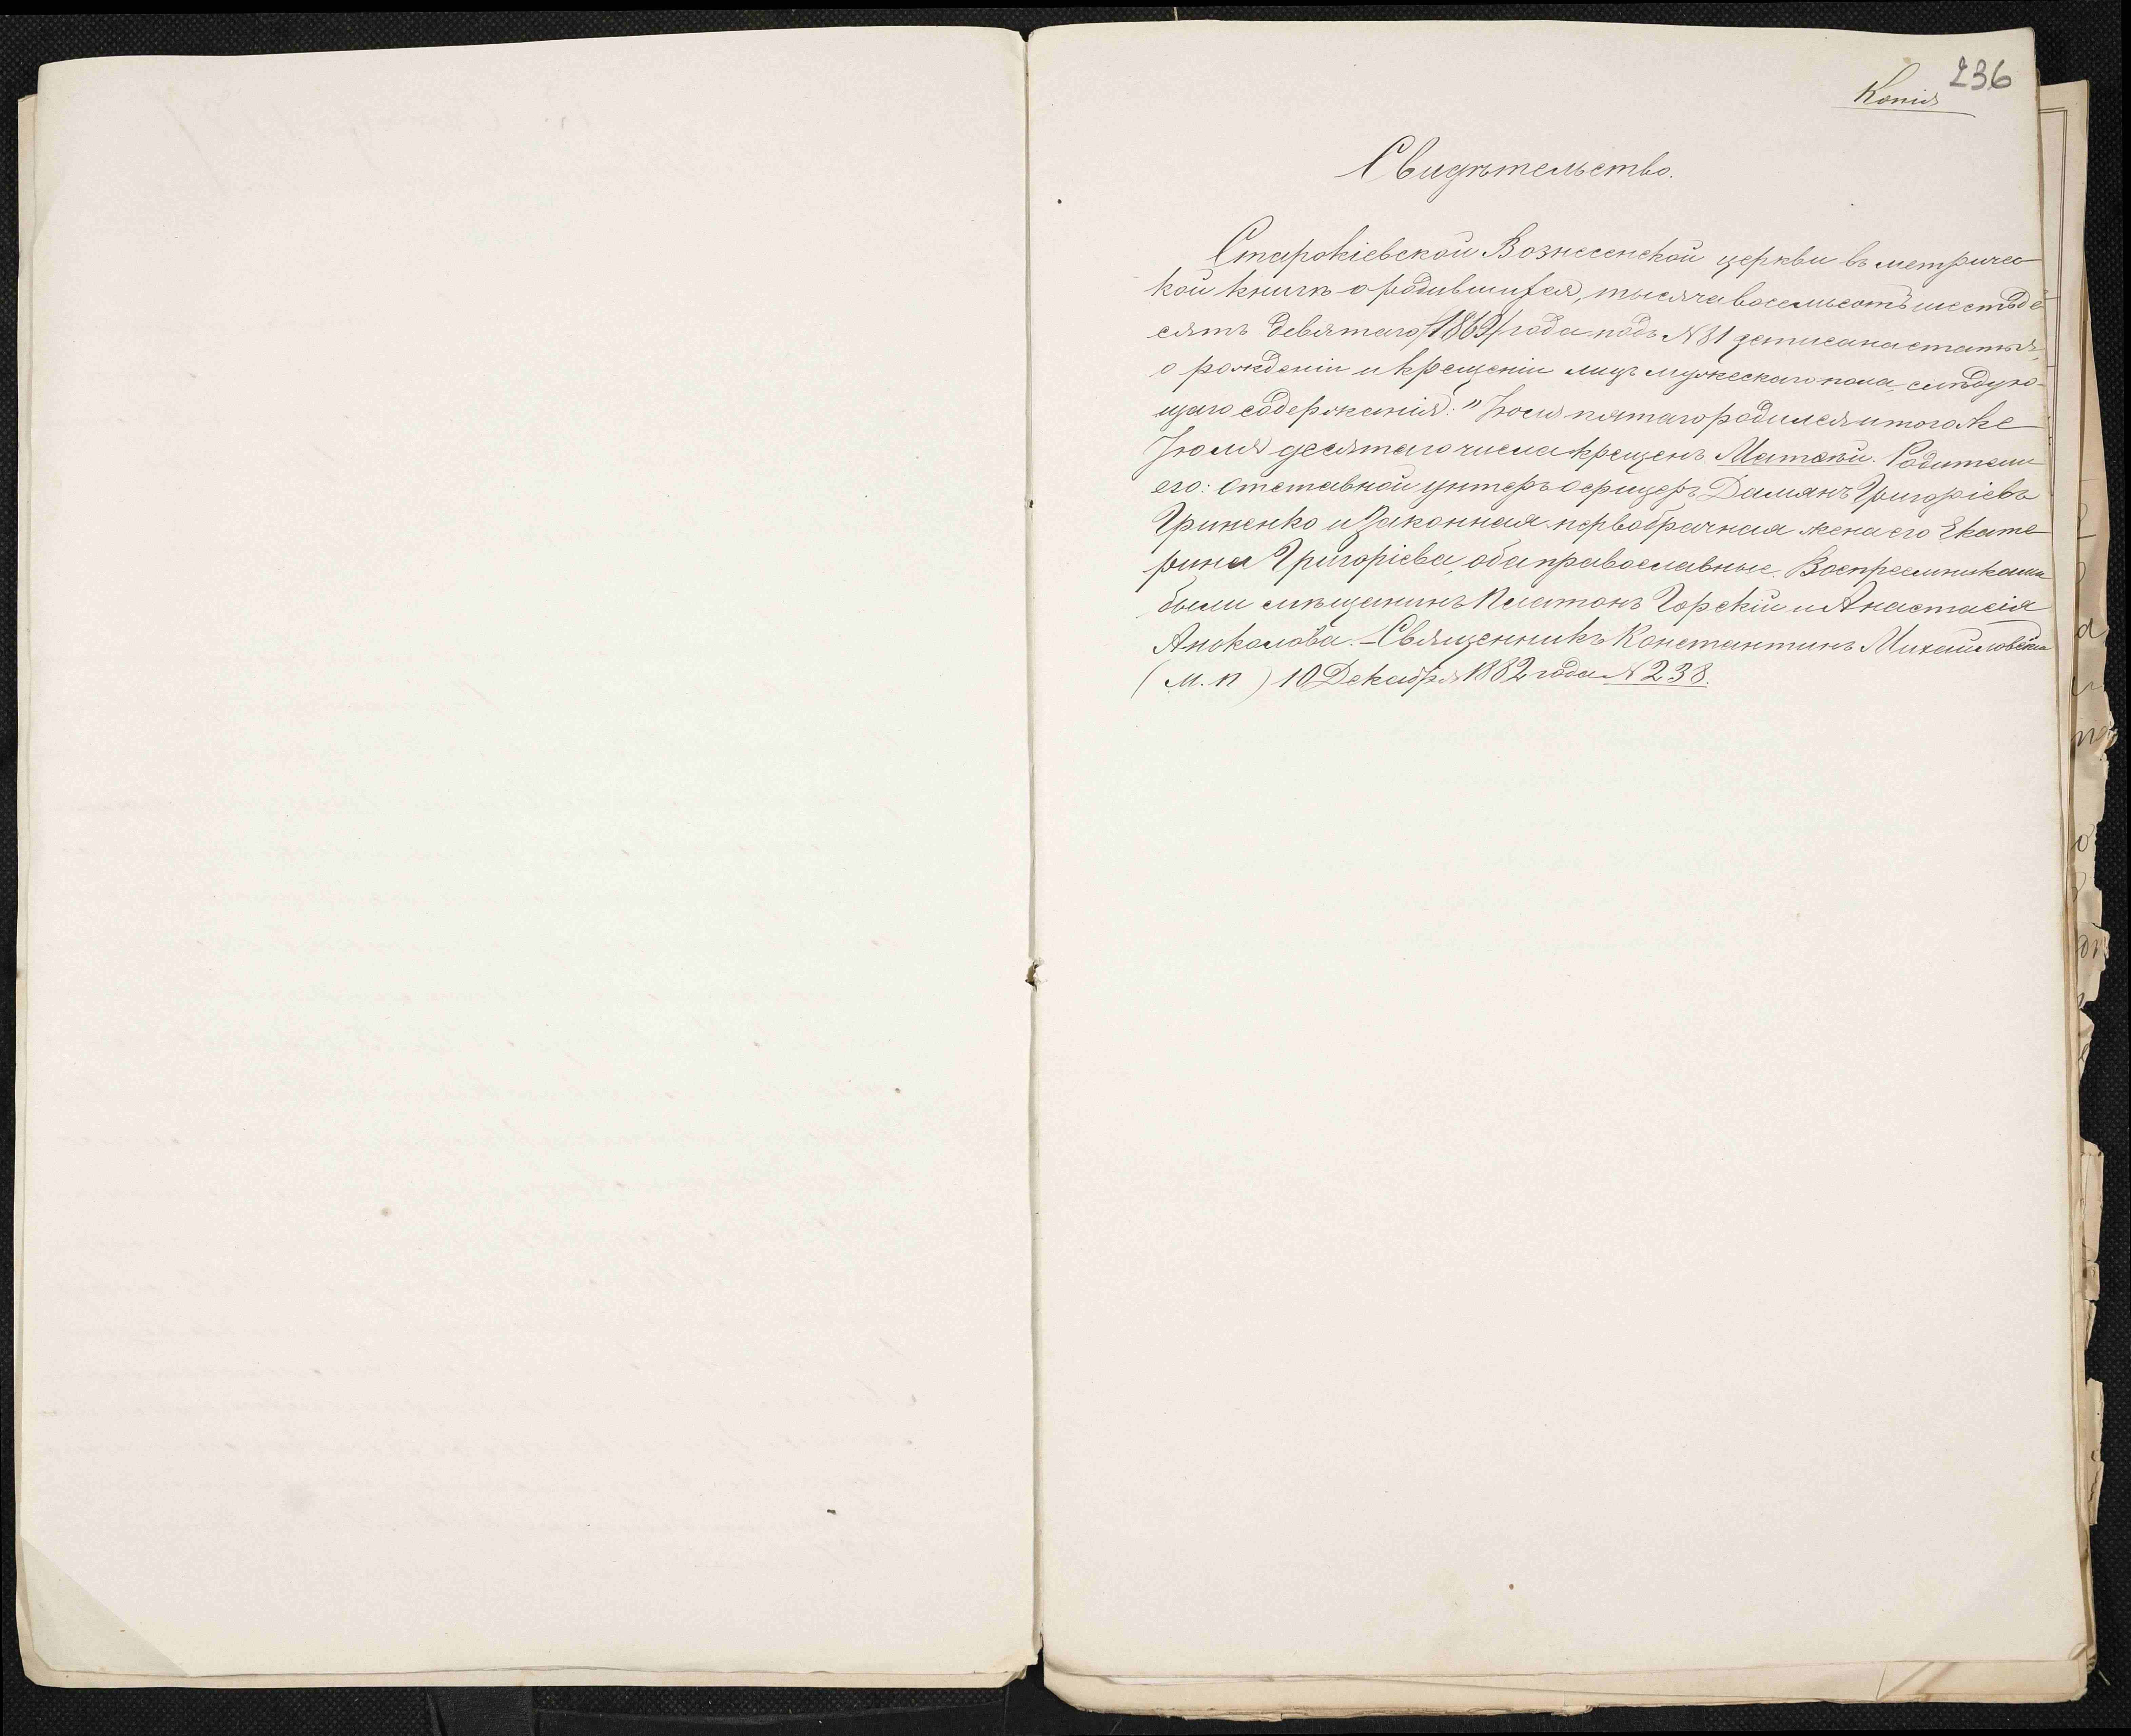 236
Копія
Свидѣтельство.
Старокіевской Вознесенской церкви въ метричес
кой книгѣ о родившихся, тысяча восемьсотъ шестьде
сятъ девятаго /1869/ года подъ №31 записана статья,
о рожденіи и крещеніи лицъ мужескаго пола, слѣдую-
щаго содержанія: "Іюля пятаго родился и того же
Іюля десятаго числа крещенъ Матѳѣй. Родители
его: отставной унтеръ офицеръ Даміанъ Григоріевъ
Гриненко и законная первобрачная жена его Екате
рина Григоріева, оба православные. Воспреемниками
были мѣщанинъ Платонъ Горскій и Анастасія
Священникъ Константинъ Михайловскій
(М.П) 10 Декабря 1882 года №238.